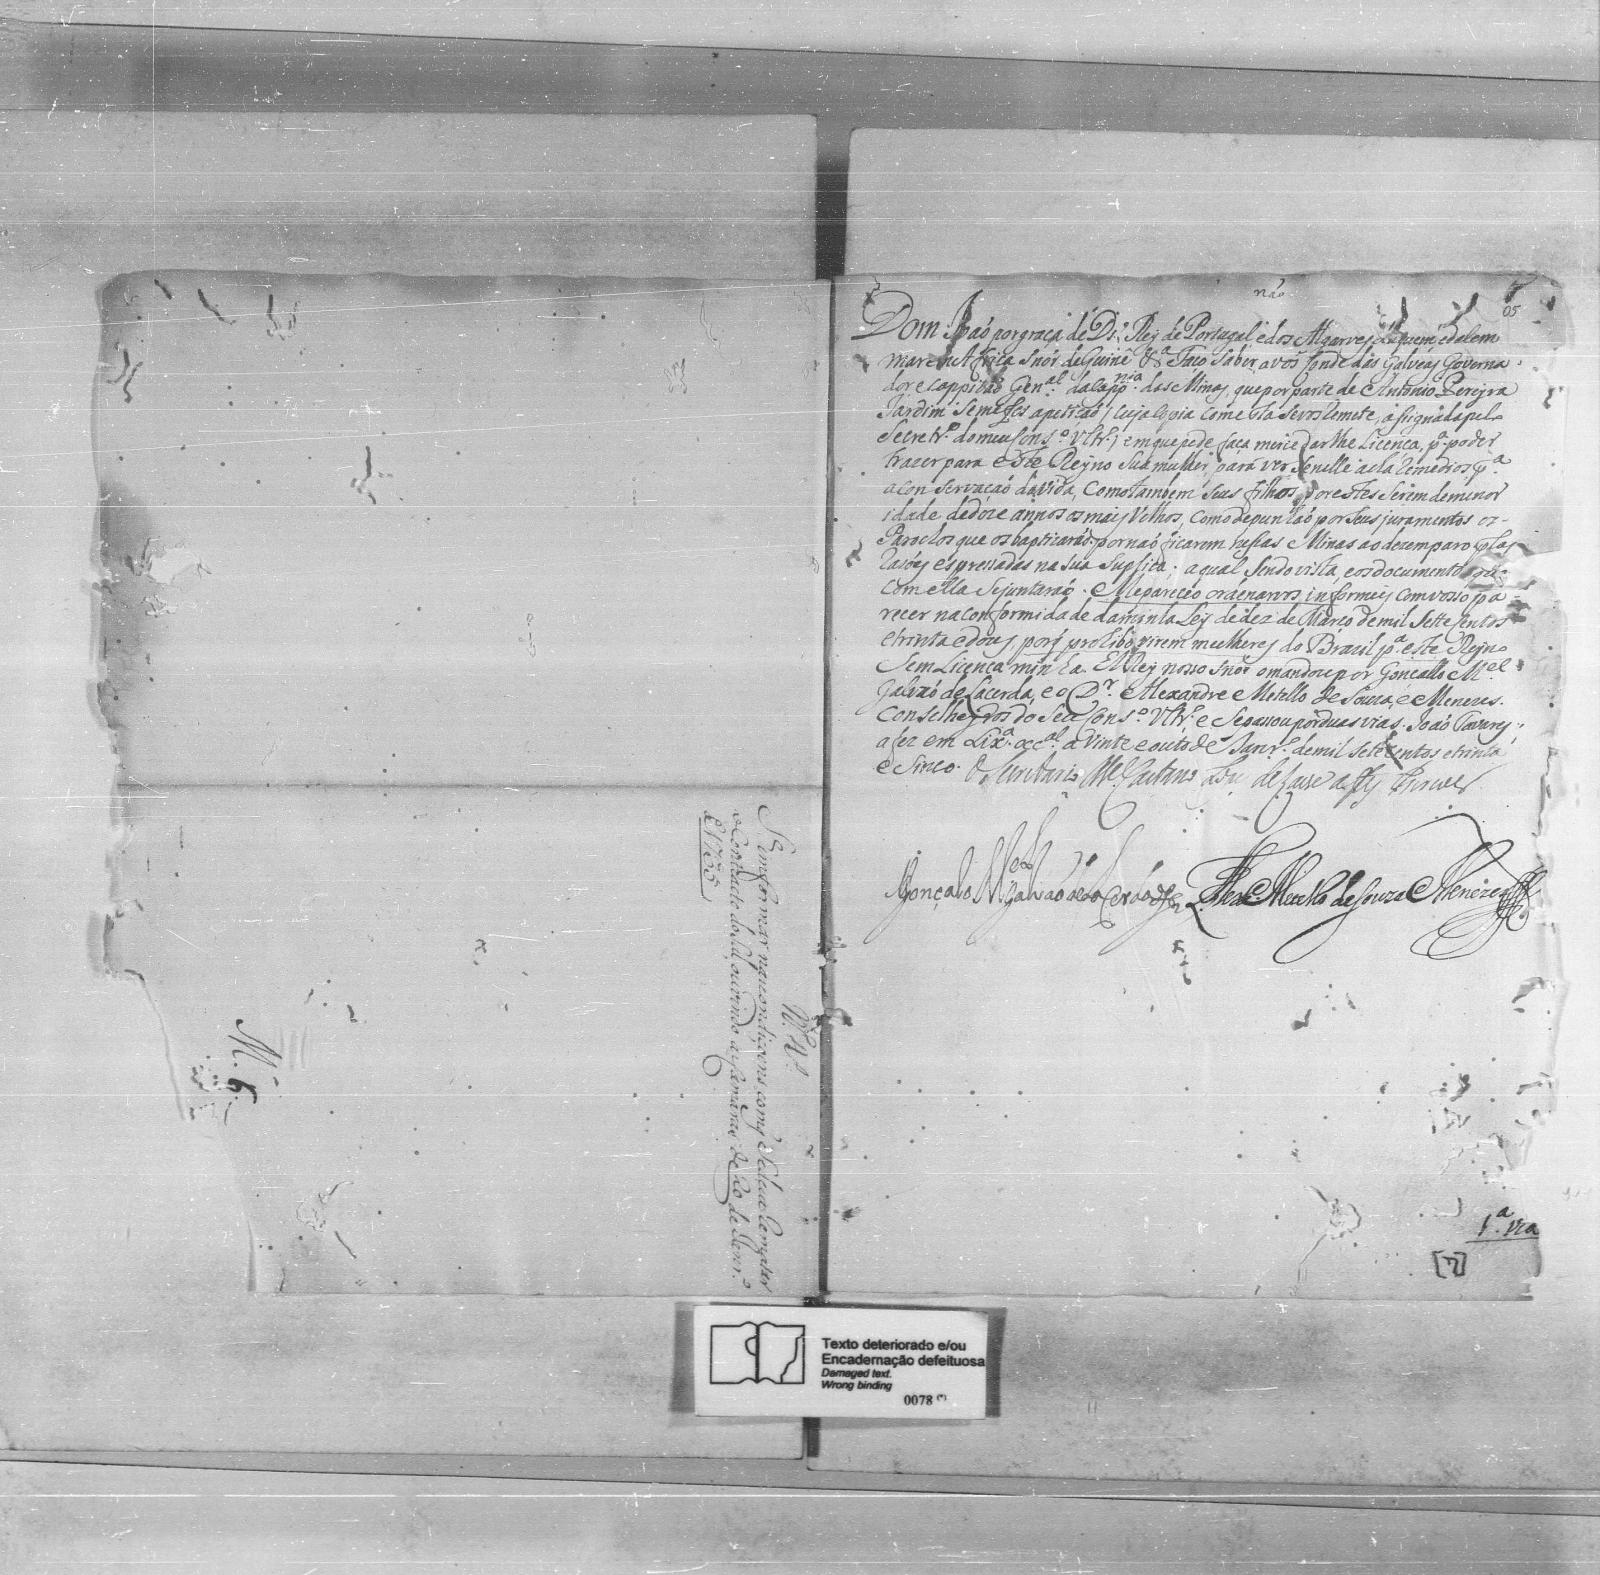 R. N.
Se informar na condiçoens com q̃ se deve Rematar
o Contracto do Sal, ouvindo as Camaras do Rio de Janr.º
E 1735
M. 6.
não
05
Dom João por graça de D.s Rey de Portugal e dos Algarves daquem e dalem
mar em Africa Snór de Guiné &ª Faço saber a vós Conde das Galveas Governa-
dor e Cappitão Gen.al da Capp.nia das Minas, que por parte de Antonio Pereyra
Jardim se me fes a petição, cuja copia com esta se vos remete, asignada pelo
Secretr.º do meu Cons.º Ultr.º, em que pede faça mercê dar lhe Licença, p.ª poder
trazer para este Reyno sua mulher, para ver se nelle acha remedios p.ª
a conservação da vida, como tambem seus filhos, por estes serem de menor
idade de doze annos os mais velhos, como depunhão por seus juramentos os
Parochos que os baptizarão, por naó ficarem nessas Minas ao dezemparo, pelas
razões espressadas na sua suplica; a qual sendo vista, e os documentos que
com ella se juntaraó. Me pareceo ordenarvos, informeis com vosso pa-
recer na conformidade da minha Ley de dez de Março de mil sette sentos
e trinta e dous, por q prohibo virem mulheres do Brazil p.ª este Reyno
sem Licença minha. El Rey nosso Snór o mandou por Goncallo M.el
Galvaó de Lacerda, e o D.r Alexandre Metello de Souza, e Menezes.
Conselheyros do seu Cons.º Ultr.º e se passou por duas vias. João Tavares
a fez em Lix.ª occ.al a vinte e outo de Janr.º de mil setecentos e trinta
e sinco. O Secretario M.el Caetano Lopes de Lavre a fez escrever
Gonçalo M.el Galvaó de Lacerda Alex.e Metello de Souza Menezes
1.ª via
[7]
Texto deteriorado e/ou
Encadernação defeituosa
Damaged text.
Wrong binding
0078 (*)